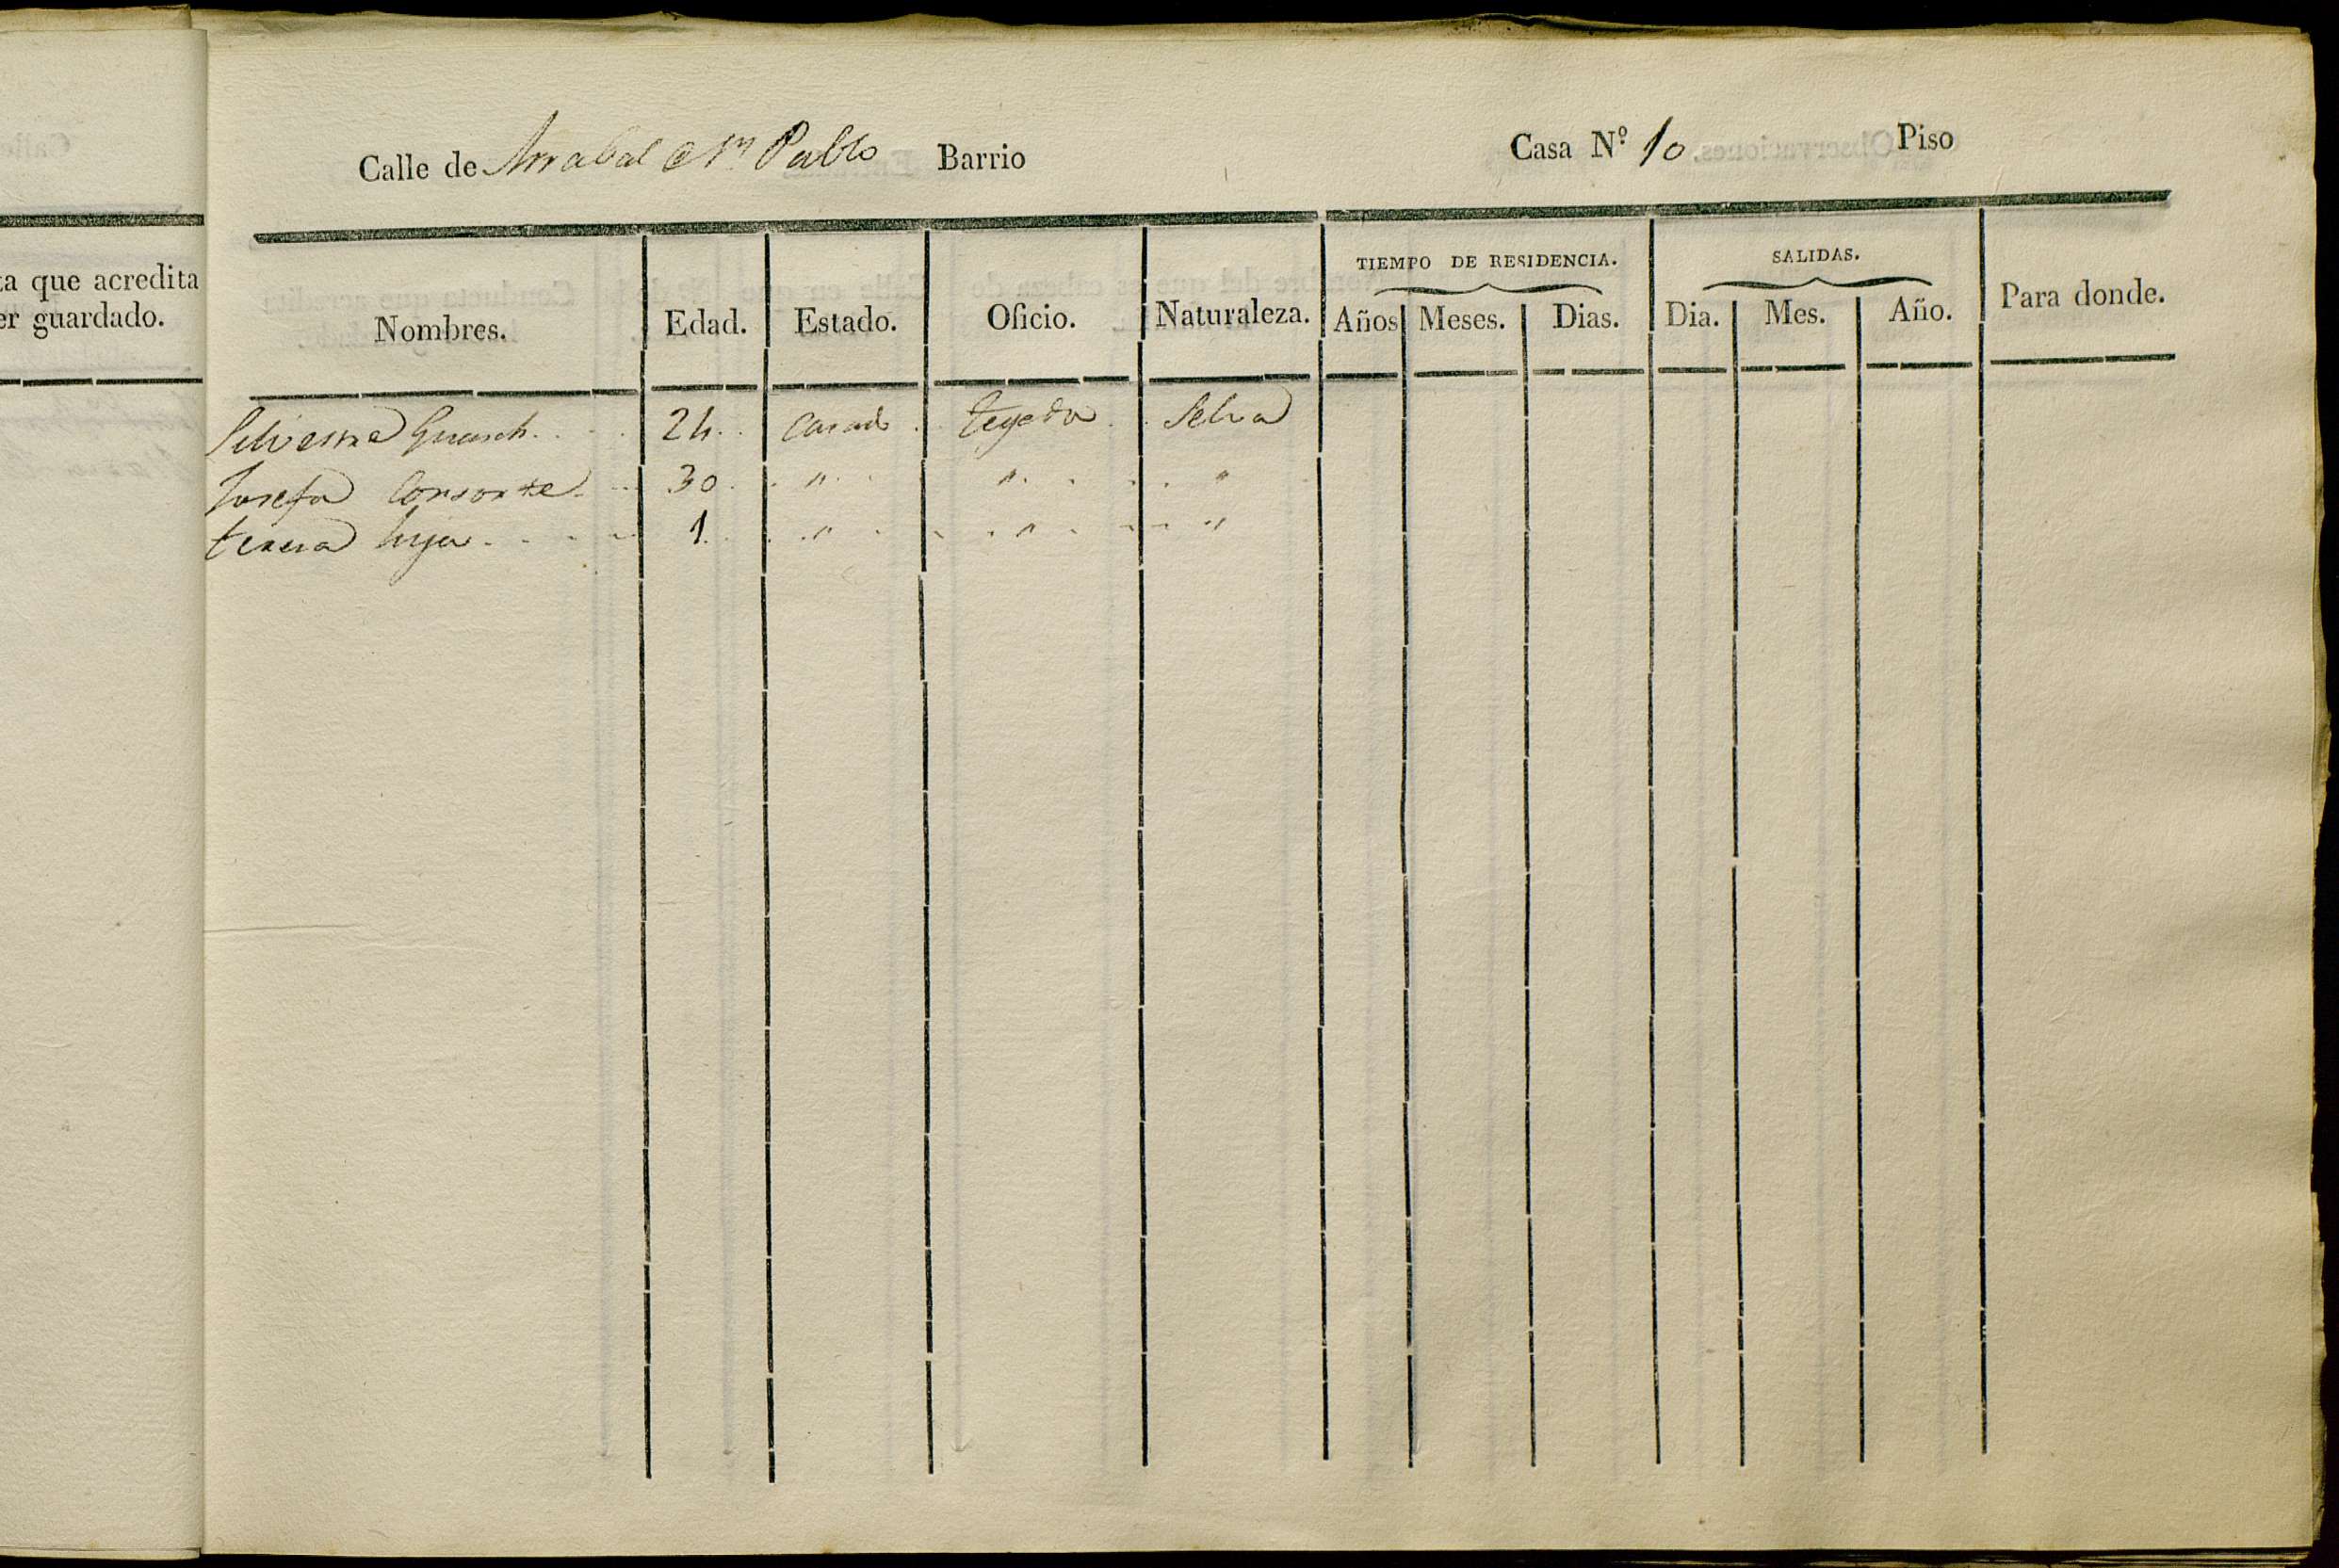 ta que acredita
er guardado.
Calle de Arrabal de Sn Pablo Barrio Casa N.º 10 Piso
Nombres. Edad. Estado. Oficio. Naturaleza. TIEMPO DE RESIDENCIA. Años Meses. Dias. SALIDAS. Dia. Mes. Año. Para donde.
Silvestre Guasch 24 casado tegedor Selva
Josefa Consorte 30 " " "
teresa hija 1 " " "